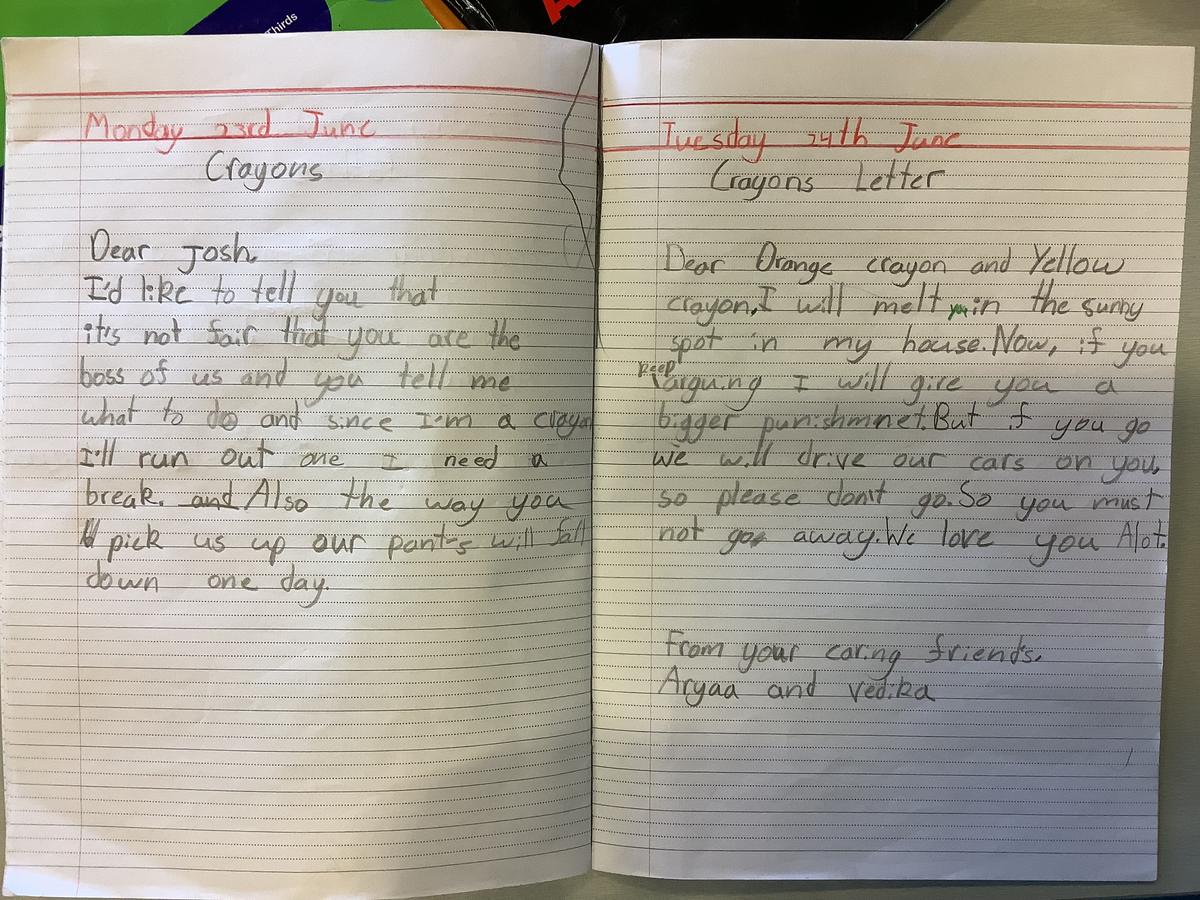 Thirds
Monday 23rd June
Crayons
Dear Josh,
I'd like to tell you that
it's not fair that you are the
boss of us and you tell me
what to do and since I'm a crayon
I'll run out one I need a
break. and Also the way you
pick us up our pant's will fall
down one day.
Tuesday 24th June
Crayons Letter
Dear Orange crayon and Yellow
crayon,I will melt you in the sunny
spot in my house.Now, if you
keep arguing I will give you a
bigger punishmnet.But if you go
we will drive our cars on you,
so please don't go.So you must
not go away.We love you Alot.
From your caring friend's.
Aryaa and vedika